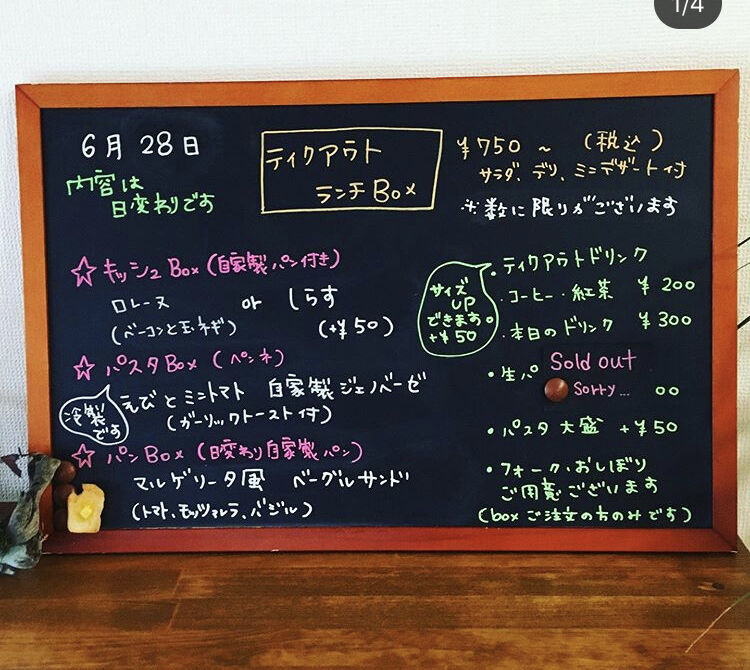 1/4
6月 28日
内容は
日変わりです
テイクアウト
ランチBox
¥750 ~ (税込)
サラダ、デリ、ミニデザート付
※数に限りがございます
☆キッシュBox(自家製パン付き)
ロレーヌ or しらす
(ベーコンと玉ネギ) (+¥50)
☆パスタBox(ペンネ)
冷製
です
えびとミニトマト 自家製ジェノベーゼ
(ガーリックトースト付)
☆パンBox(日変わり自家製パン)
マルゲリータ風 ベーグルサンド
(トマト、モッツァレラ、バジル)
サイズ
UP
できます。
+¥50
・テイクアウトドリンク
コーヒー・紅茶 ¥200
・本日のドリンク ¥300
・生パ
Sold out
Sorry...
00
・パスタ 大盛 +¥50
・フォーク、おしぼり
ご用意ございます
(boxご注文の方のみです)